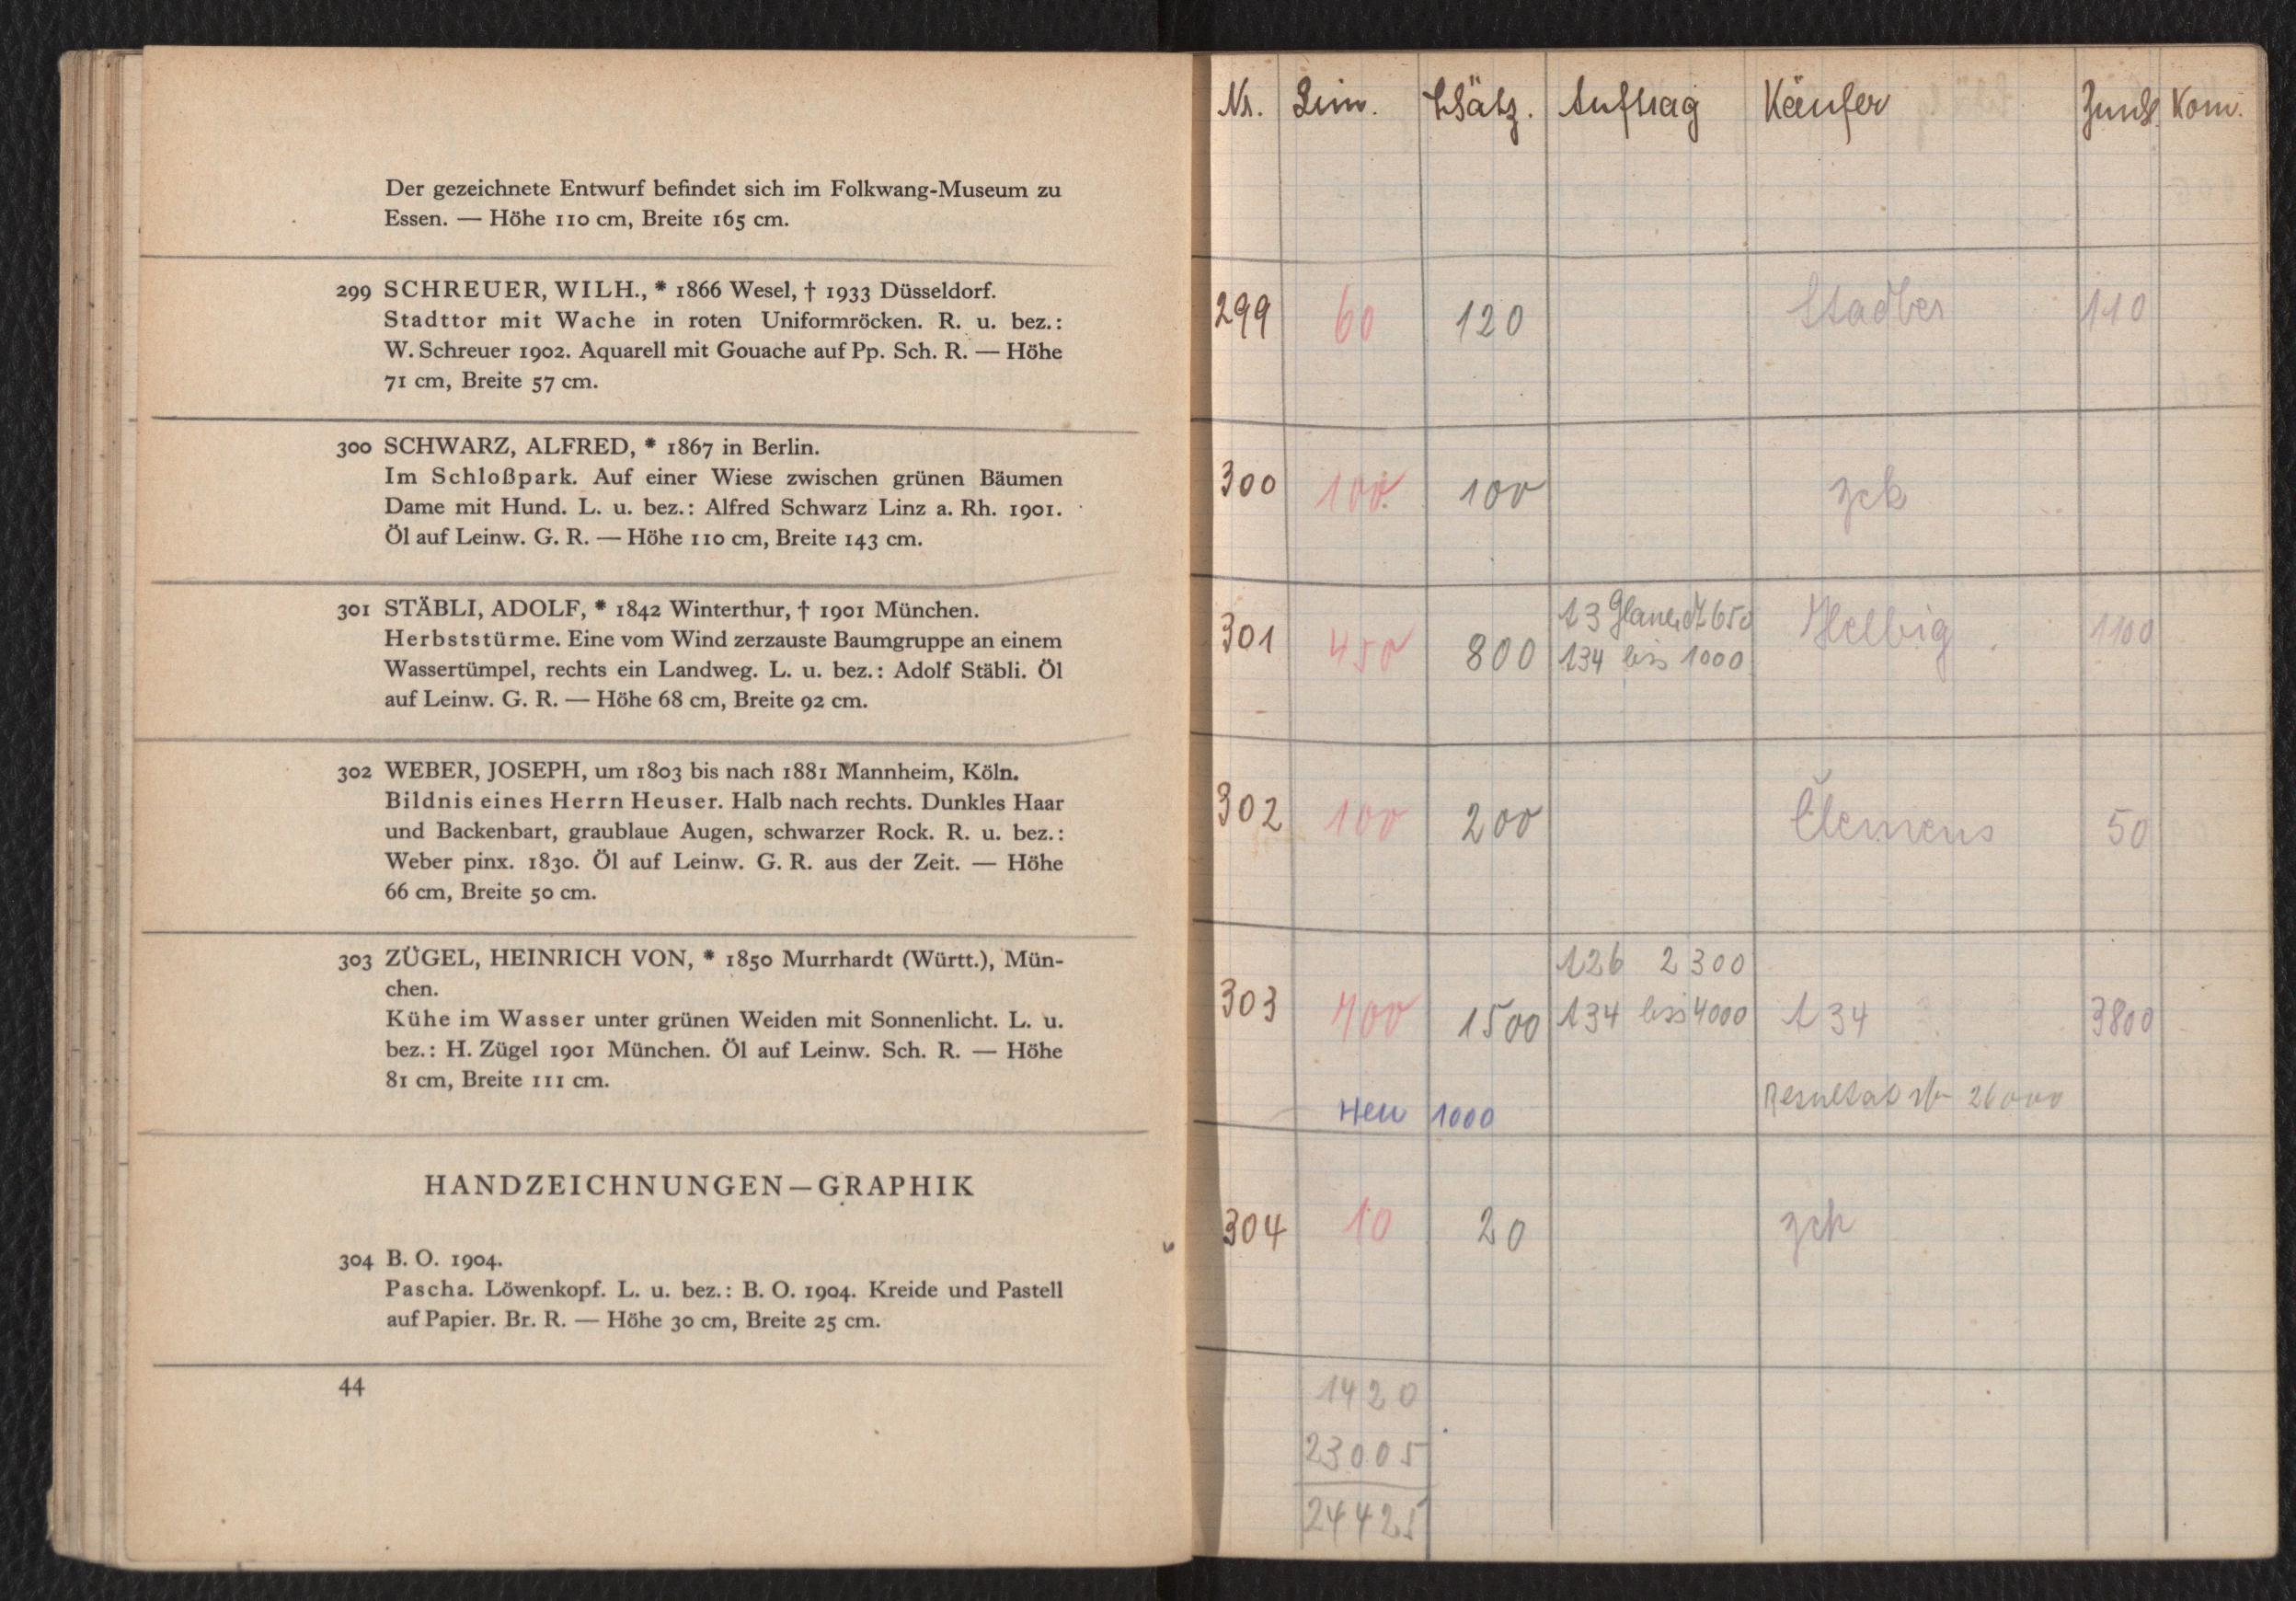 Der gezeichnete Entwurf befindet sich im Folkwang-Museum zu
Essen. — Höhe 110 cm, Breite 165 cm.
299 SCHREUER, WILH., * 1866 Wesel, † 1933 Düsseldorf.
Stadttor mit Wache in roten Uniformröcken. R. u. bez.:
W. Schreuer 1902. Aquarell mit Gouache auf Pp. Sch. R. — Höhe
71 cm, Breite 57 cm.
300 SCHWARZ, ALFRED, * 1867 in Berlin.
Im Schloßpark. Auf einer Wiese zwischen grünen Bäumen
Dame mit Hund. L. u. bez.: Alfred Schwarz Linz a. Rh. 1901.
Öl auf Leinw. G. R. — Höhe 110 cm, Breite 143 cm.
301 STÄBLI, ADOLF, * 1842 Winterthur, † 1901 München.
Herbststürme. Eine vom Wind zerzauste Baumgruppe an einem
Wassertümpel, rechts ein Landweg. L. u. bez.: Adolf Stäbli. Öl
auf Leinw. G. R. — Höhe 68 cm, Breite 92 cm.
302 WEBER, JOSEPH, um 1803 bis nach 1881 Mannheim, Köln.
Bildnis eines Herrn Heuser. Halb nach rechts. Dunkles Haar
und Backenbart, graublaue Augen, schwarzer Rock. R. u. bez.:
Weber pinx. 1830. Öl auf Leinw. G. R. aus der Zeit. — Höhe
66 cm, Breite 50 cm.
303 ZÜGEL, HEINRICH VON, * 1850 Murrhardt (Württ.), Mün-
chen.
Kühe im Wasser unter grünen Weiden mit Sonnenlicht. L. u.
bez.: H. Zügel 1901 München. Öl auf Leinw. Sch. R. — Höhe
81 cm, Breite 111 cm.
HANDZEICHNUNGEN—GRAPHIK
304 B. O. 1904.
Pascha. Löwenkopf. L. u. bez.: B. O. 1904. Kreide und Pastell
auf Papier. Br. R. — Höhe 30 cm, Breite 25 cm.
44
Nr. Lim. Schätz. Auftrag Käufer Zuschl. Kom.
299 60 120 Stadler 110
300 100 100 zck
301 450 800 650 Helbig 1100
134 bis 1000
302 100 200 Clemens 50
126 2300
303 400 1500 134 bis 4000 134 3800
Resultat 26000
Heu 1000
304 10 20 zck
1420
23005
24425